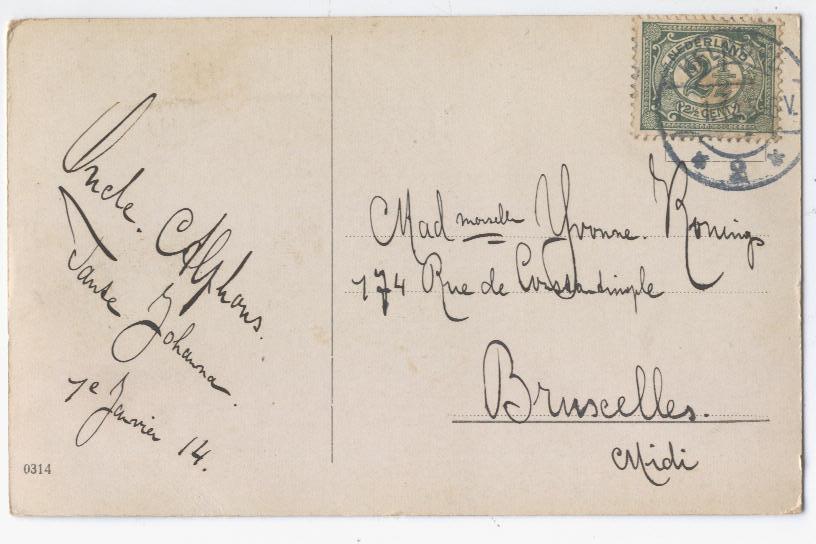 Oncle. Alphons.
Tante Johanna.
1e Janvier 14.
0314
NEDERLAND
2½
2½ CENT
2
Mad moiselle Yvonne. Konings
174 Rue de Constantinople
Bruxelles.
Midi